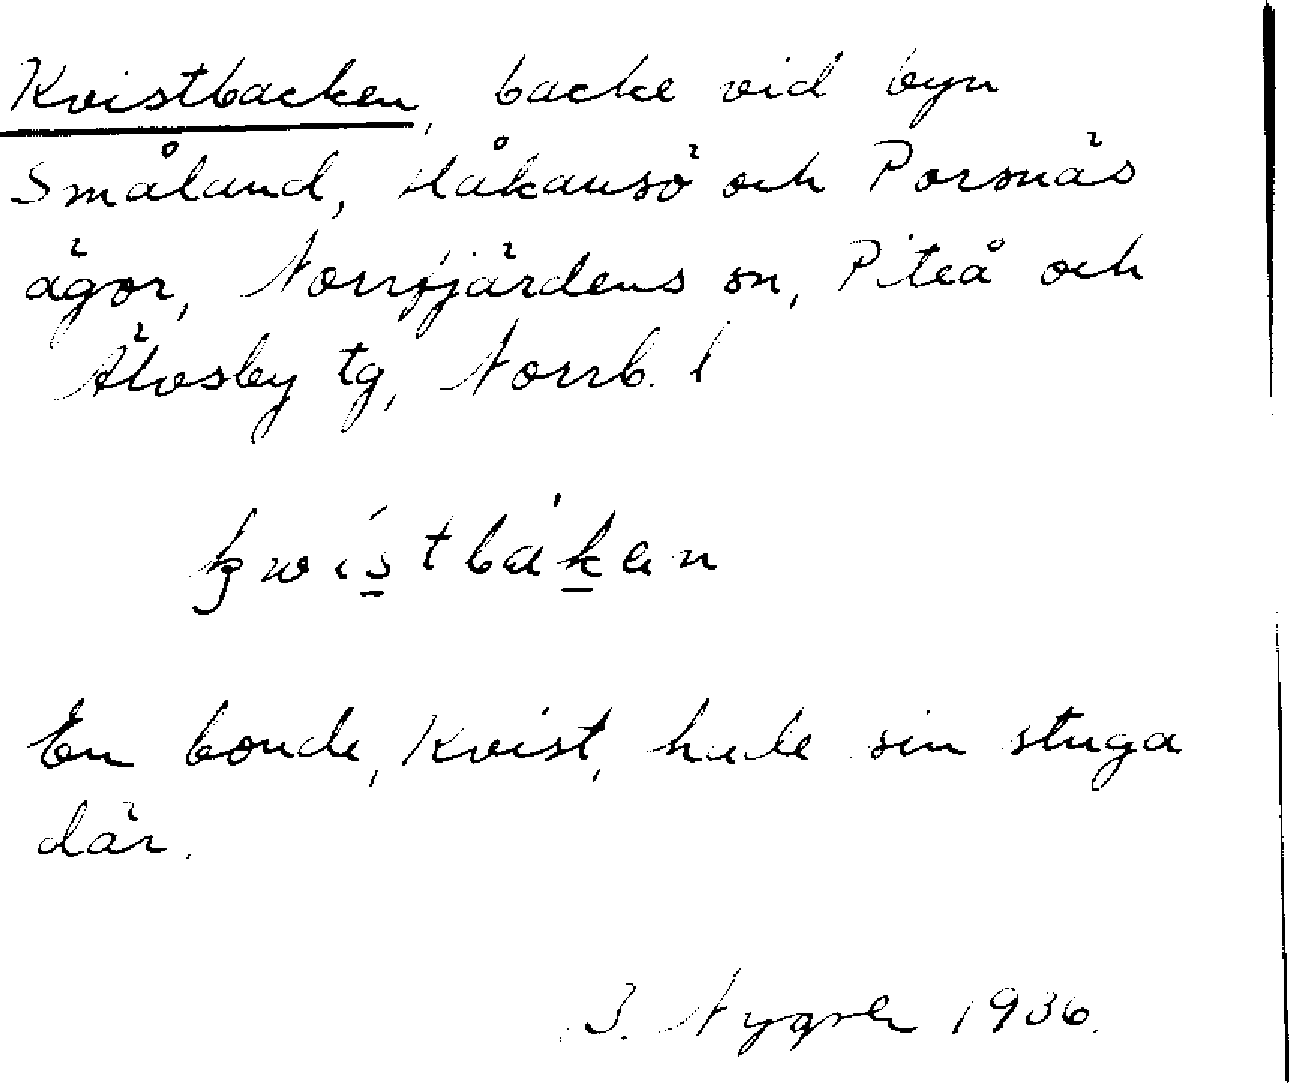 Kvistbacken, backe vid byn
Småland, Håkansö och Porsnäs
ägor, Norrfjärdens sn, Piteå och
Älvsby tg, Norrb. l
kwistbakan
En bonde, Kvist, hade sin stuga
där.
J. Nygren 1936.